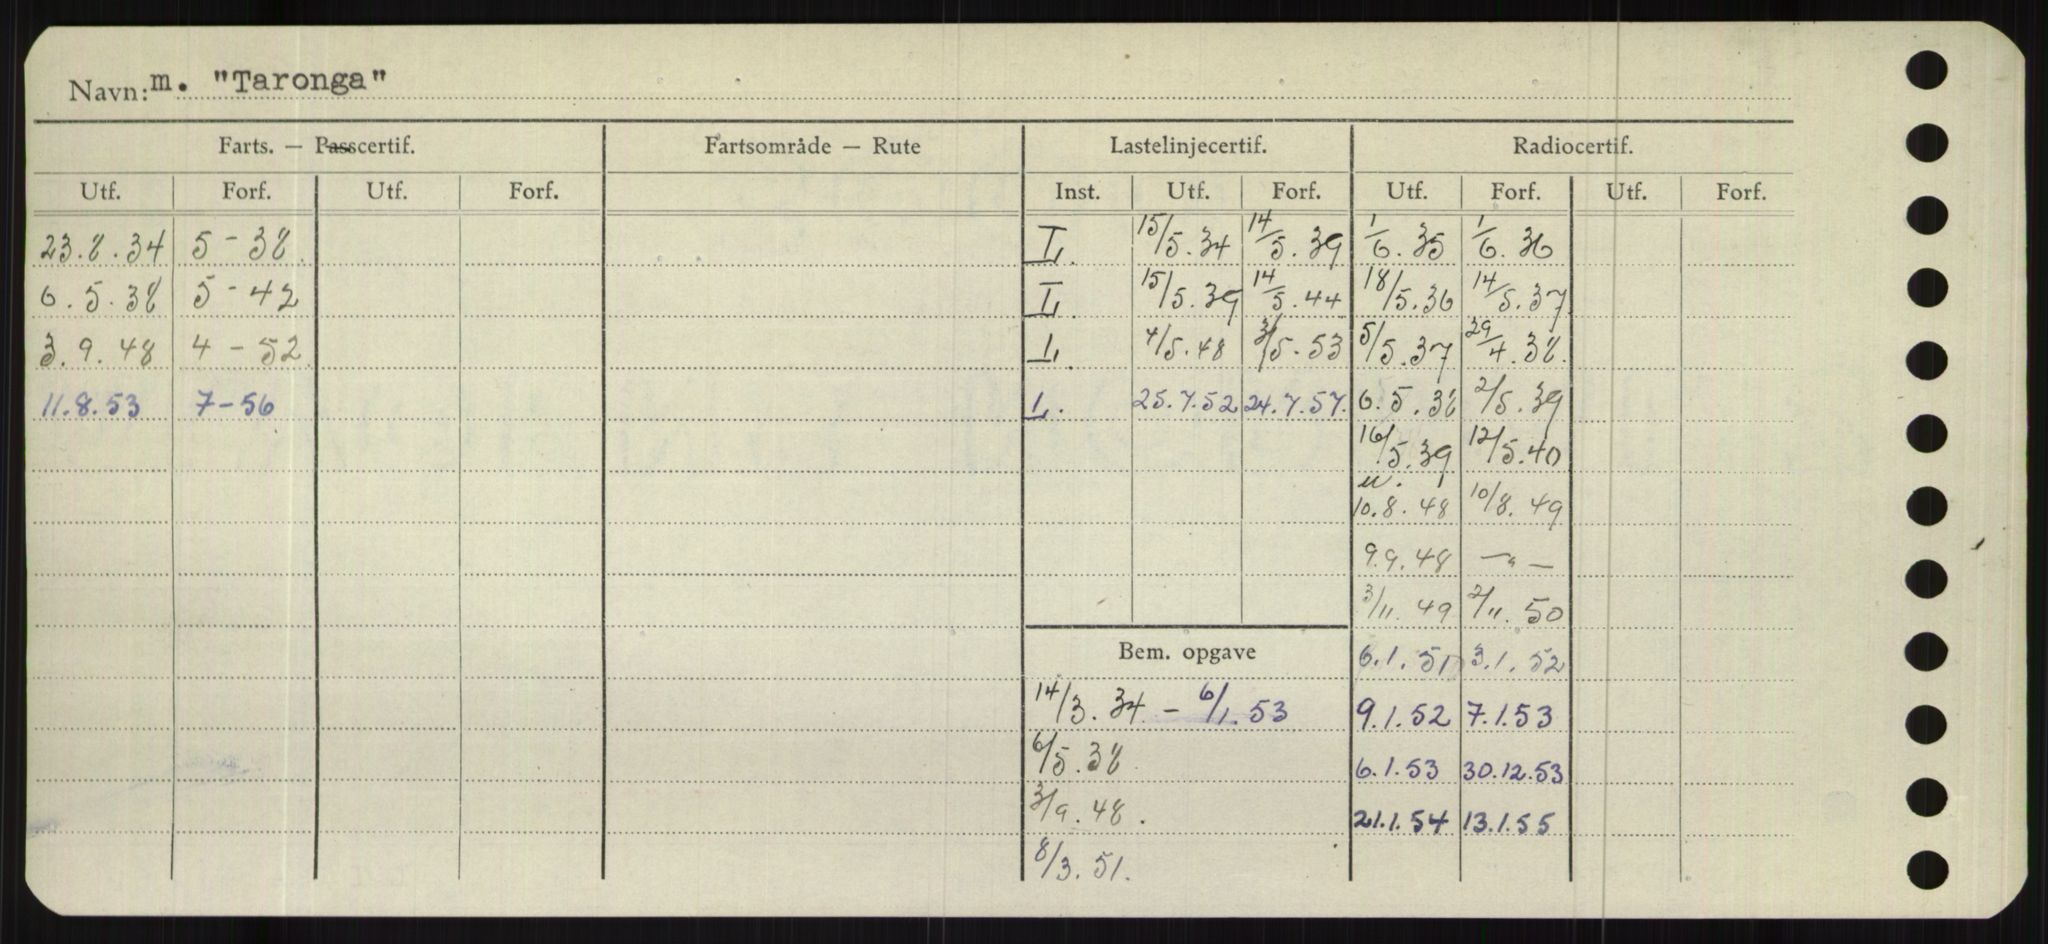 Navn: m. "Taronga"
Farts. — Passcertif. Fartsområde — Rute Lastelinjecertif. Radiocertif.
Utf. Forf. Utf. Forf. Inst. Utf. Forf. Utf. Forf. Utf. Forf.
23.8.34 5 - 38 L. 15/5.34 14/5.39 1/6.35 1/6.36
6.5.38 5 - 42 L. 15/5.39 14/5.44 18/5.36 14/5.37
3.9.48 4 - 52 L. 4/5.48 3/5.53 5/5.37 29/4.38.
11.8.53 7-56 L. 25.7.52 24.7.57. 6.5.38 2/5.39
16/5.39 12/5.40
10.8.48 10/8.49
9.9.48 — " —
3/11.49 2/11.50
Bem. opgave 6.1.51 3.1.52
14/3.34 - 6/1.53 9.1.52 7.1.53
6/5.38 6.1.53 30.12.53
3/9.48. 21.1.54 13.1.55
8/3.51.